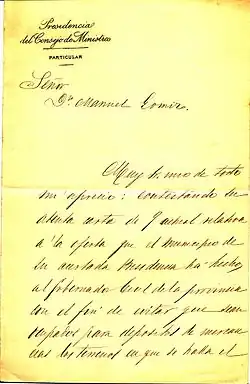 Presidencia
del Consejo de Ministros
PARTICULAR
Señor
Dn Manuel
Muy Sr. mio de todo
mi aprecio: contestando su
atenta carta de 9 actual relativa
a la oferta que el Municipio de
su acertada Presidencia ha hecho
al Gobernador Civil de la provincia
con el fin de evitar que sean
ocupados para depositos de mercan
cias los terrenos en que se halla el